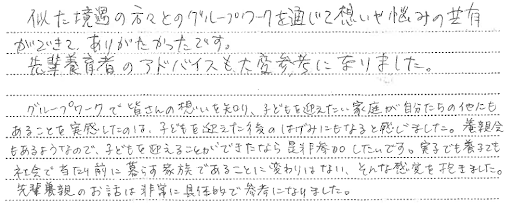 似た境遇の方々とのグループワークを通じて想いや悩みの共有
ができて、ありがたかったです。
先輩養育者のアドバイスも大変参考になりました。
グループワークで皆さんの想いを知り、子どもを迎えたい家庭が自分たちの他にも
あることを実感したのは、子どもを迎えた後のはげみにもなると感じました。養親会
もあるようなので、子どもを迎えることができたなら是非参加したいです。実子でも養子でも
社会で当たり前に暮らす家族であることに変わりはない、そんな感覚を抱きました。
先輩養親のお話は非常に具体的で参考になりました。